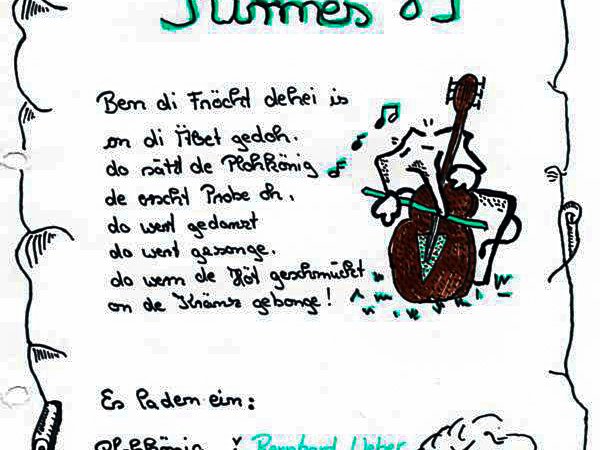 Kirmes
Bem di Fröcht dehei is
on di Ärbet gedoh.
do sätzd de Plohkönig
de erscht Probe oh,
do werd gedanzt
do werd gesonge,
do wern de Höt geschmückt
on de Kränz gebonge!
Es laden ein:
Plohkönig : Bernhard Weber